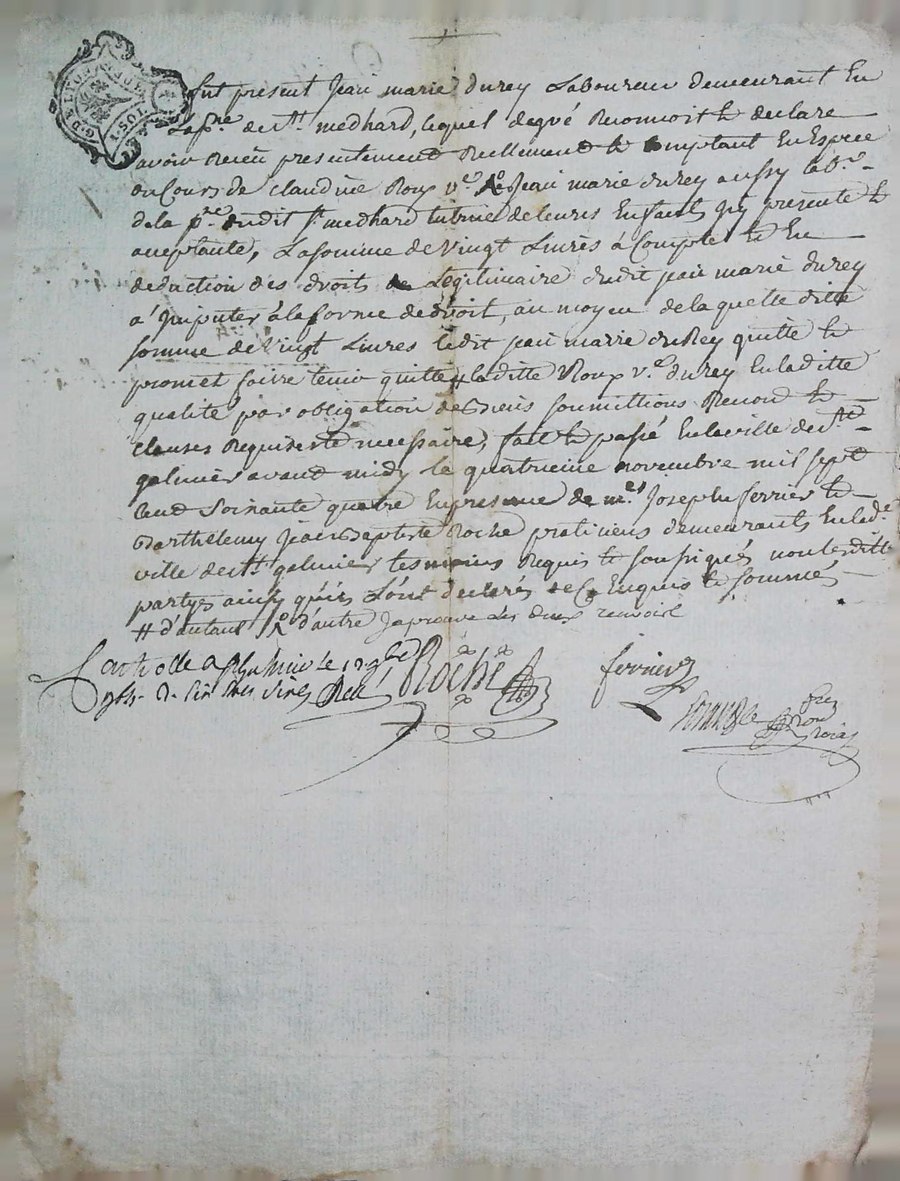 G. DE LYON
fut present Jean marie durey Laboureur demeurant En
La psse de st medhard, lequel degré Reconnoit & declare
avoir Receu presentement Reellement & Comptant En Espece
au Cours de claudine Roux ve de Jean marie durey aussy labr
de la psse dudit st medhard tutrice de leures Enfants Icy presente &
aceptante, La somme de vingt Livres à Compte & En
deduction des droits de Legitimaire dudit jean marie durey
a Imputer à la forme de droit, au moyen de la quelle ditte
somme de vingt Livres ledit jean marie du Rey quitte &
promet faire tenir quitte # laditte Roux ve durey En laditte
qualité par obligation de Biens soumissions Renond &
clauses Requises & necessaire, fait & passé En la ville de st
galmier avant midy le quatrieme novembre mil sept
Cent soixante quatre En presence de mes Joseph ferrier &
Barthelemy Jean Baptiste Roche praticiens demeurants En lade
ville de st galmier tesmoins Requis & sousignés non lesdittes
partyes ainsy qu'ils L'ont declarés de ce Enquis & sommés
# d'autant & d'autre Japrouve Les deux renvois
Controllé a St Galmier le
Roche ferrier